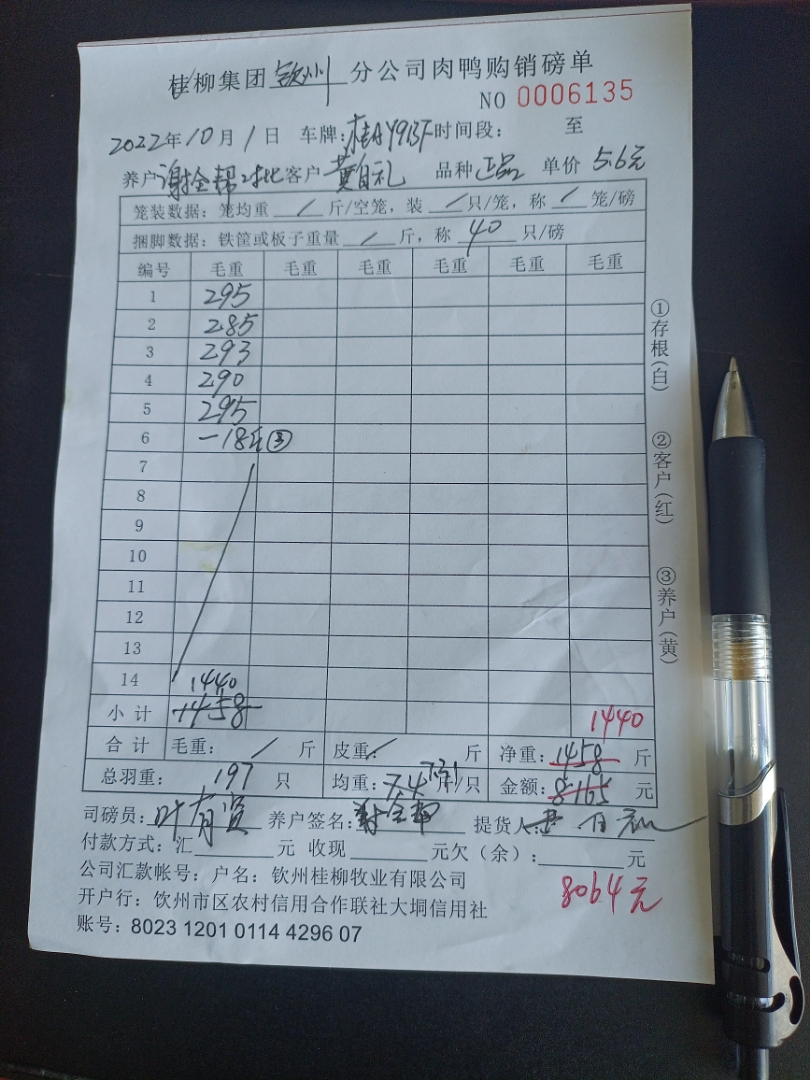 桂柳集团 钦州 分公司肉鸭购销磅单
NO 0006135
2022年10月1日 车牌: 时间段: 至
养户 谢全帮 对比 客户 黄自礼 品种 正品 单价 5.6元
笼装数据:笼均重 / 斤/空笼,装 / 只/笼,称 / 笼/磅
捆脚数据:铁筐或板子重量 / 斤,称 40 只/磅
编号 毛重 毛重 毛重 毛重 毛重 毛重
1 295
2 285
3 293
4 290
5 295
6 -18斤③
7
8
9
10
11
12
13
14 1440
小计 1458 1440
合计 毛重: / 斤 皮重: / 斤 净重: 1458 斤
总羽重: 197 只 均重: 7.4 7.31 斤/只 金额: 8165 元
司磅员: 叶有资 养户签名: 谢全帮 提货人: 自礼
付款方式:汇 元 收现 元欠(余): 元
公司汇款帐号:户名:钦州桂柳牧业有限公司
8064元
开户行:钦州市区农村信用合作联社大垌信用社
账号:8023 1201 0114 4296 07
①存根(白)
②客户(红)
③养户(黄)